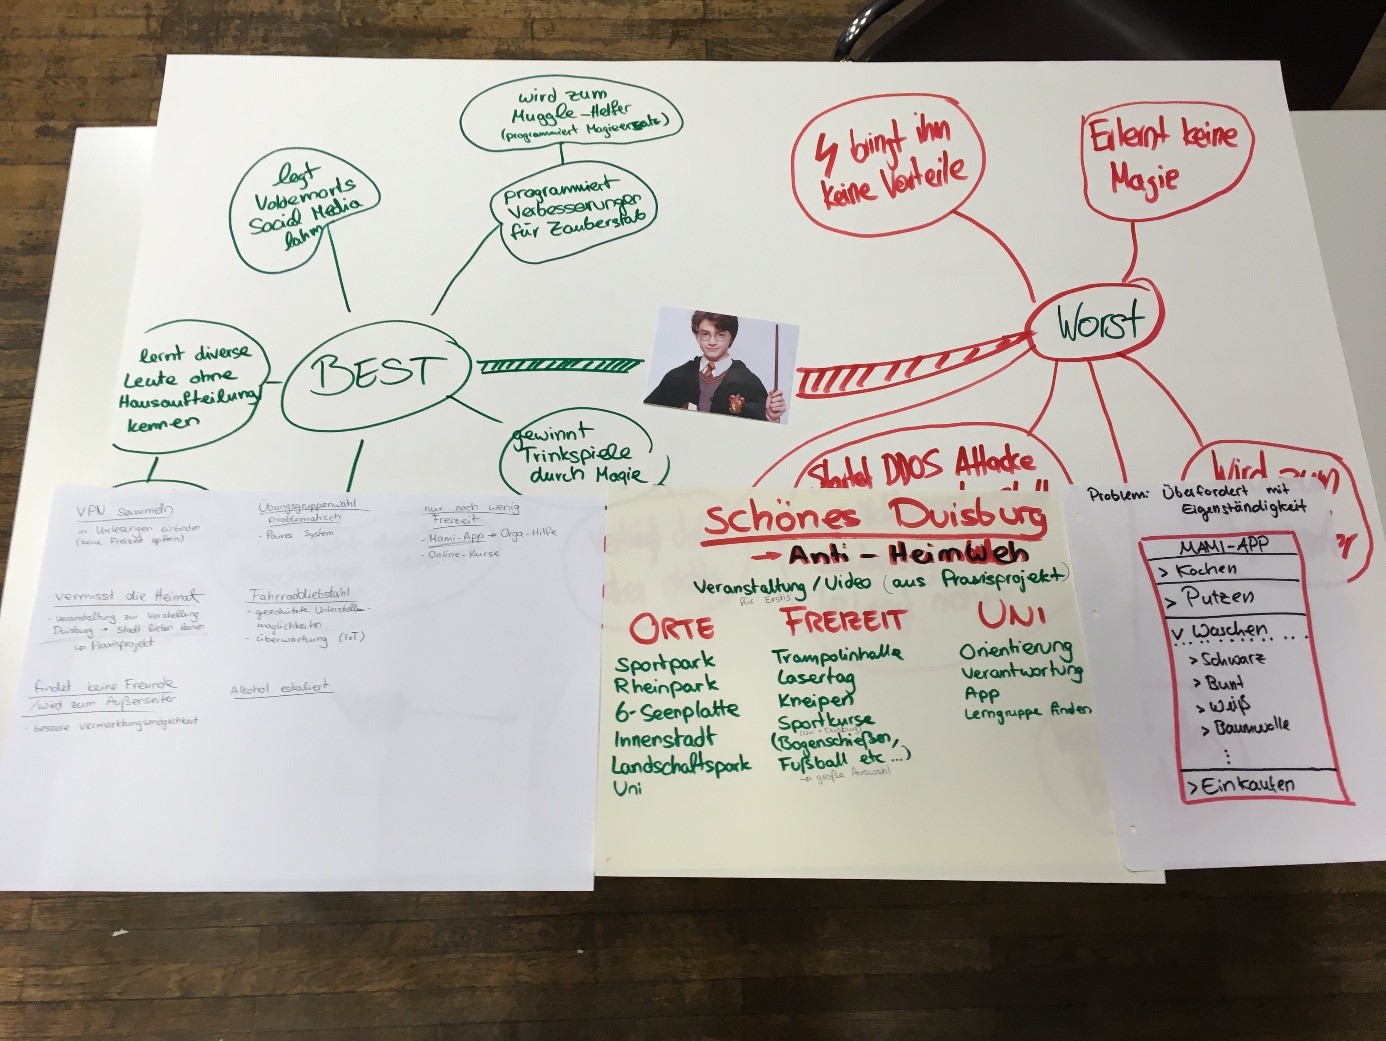 wird zum
Muggle-Helfer
(programmiert Magieersatz)
programmiert
Verbesserungen
für Zauberstab
legt
Voldemorts
Social Media
lahm
lernt diverse
Leute ohne
Hausaufteilung
kennen
BEST
gewinnt
Trinkspiele
durch Magie
bringt ihm
keine Vorteile
Erlernt keine
Magie
Worst
Startet DDOS Attacke
Wird zum
VPV sammeln
- in Vorlesungen einbinden
(keine Freizeit opfern)
Übungsgruppenwahl
problematisch
- Faires System
nur noch wenig
Freizeit
- Mami-App → Orga-Hilfe
- Online-Kurse
vermisst die Heimat
- Veranstaltung zur Vorstellung
Duisburg → Stadt lieben lernen
↳ Praxisprojekt
Fahrraddiebstahl
- geschützte Unterstell-
möglichkeiten
- Überwachung (IoT)
findet keine Freunde
/wird zum Außenseiter
- bessere Vermarktungsmöglichkeit
Alkohol eskaliert
schönes Duisburg
→ Anti-Heimweh
Veranstaltung/Video (aus Praxisprojekt)
für Erstis
ORTE
Sportpark
Rheinpark
6-Seenplatte
Innenstadt
Landschaftspark
Uni
FREIZEIT
Trampolinhalle
Lasertag
Kneipen
Sportkurse
(Uni + Duisburg)
(Bogenschießen,
Fußball etc...)
→ große Auswahl
UNI
Orientierung
Verantwortung
App
Lerngruppe finden
Problem: Überfordert mit
Eigenständigkeit
MAMI-APP
> Kochen
> Putzen
v Waschen
> Schwarz
> Bunt
> Weiß
> Baumwolle
⋮
> Einkaufen